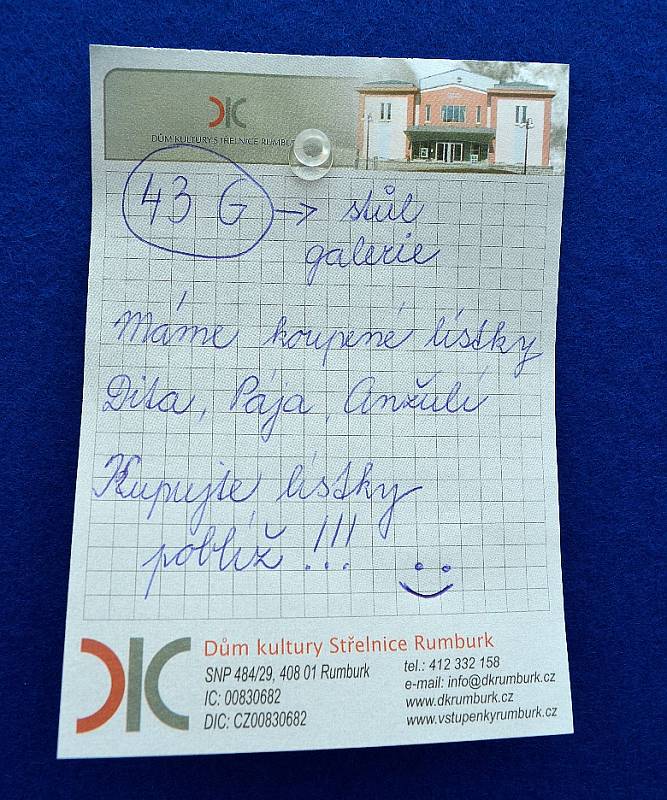 DIC
DŮM KULTURY STŘELNICE RUMBU
43 G → stůl
galerie
Máme koupené lístky
Dita, Pája, Anžulí
Kupujte lístky
poblíž !!!
DIC
Dům kultury Střelnice Rumburk
SNP 484/29, 408 01 Rumburk
IC: 00830682
DIC: CZ00830682
tel.: 412 332 158
e-mail: info@dkrumburk.cz
www.dkrumburk.cz
www.vstupenkyrumburk.cz